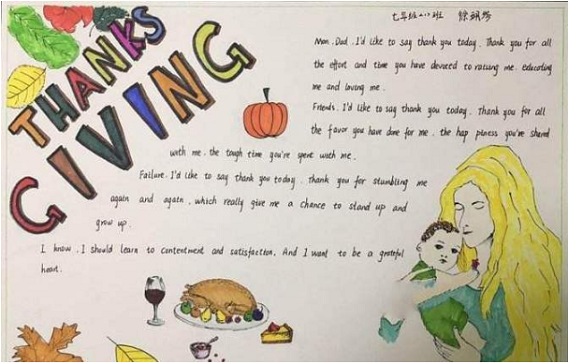 七年级(2)班
THANKS
GIVING
Mom . Dad . I'd like to say thank you today . Thank you for all
the effort and time you have devoced to raising me . educating
me and loving me .
Friends . I'd like to say thank you today . Thank you for all
the favor you have done for me . the hap piness you're shared
with me . the tough time you're spent with me .
Failure . I'd like to say thank you today . Thank you for stumbling me
again and again , which really give me a chance to stand up and
grow up .
I know . I should learn to contentment and satisfaction . And I want to be a grateful
heart .